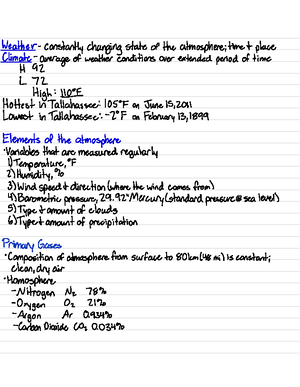 Weather - constantly changing state of the atmosphere; time & place
Climate - average of weather conditions over extended period of time
H 92
L 72
High: 110°F
Hottest in Tallahassee: 105°F on June 15, 2011
Lowest in Tallahassee: -2°F on February 13, 1899
Elements of the atmosphere
• Variables that are measured regularly
1) Temperature, °F
2) Humidity, %
3) Wind speed & direction (where the wind comes from)
4) Barometric pressure, 29.92" Mercury (standard pressure @ sea level)
5) Type & amount of clouds
6) Type & amount of precipitation
Primary Gases
• Composition of atmosphere from surface to 80km (48 mi) is constant;
clean, dry air
• Homosphere
- Nitrogen N₂ 78%
- Oxygen O₂ 21%
- Argon Ar 0.934%
- Carbon Dioxide CO₂ 0.034%